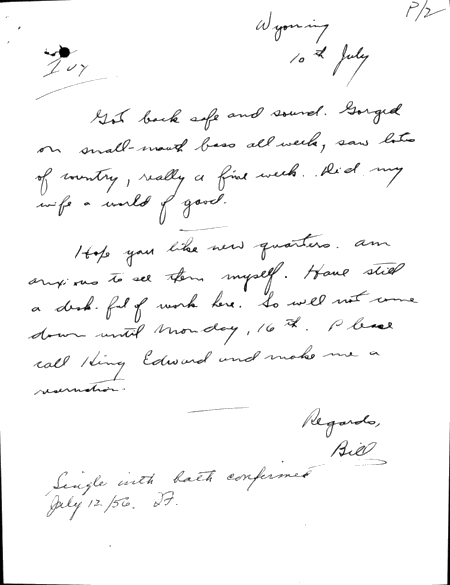 P/2
Wyoming
10th July
Ivy
Got back safe and sound. Gorged
on small-mouth bass all week, saw lots
of country, really a fine week. Did my
wife a world of good.
Hope you like new quarters. am
anxious to see them myself. Have still
a desk-ful of work here. So will not come
down until Monday, 16th. Please
call King Edward and make me a
reservation.
Regards,
Bill
Single with bath confirmed
July 12/56.